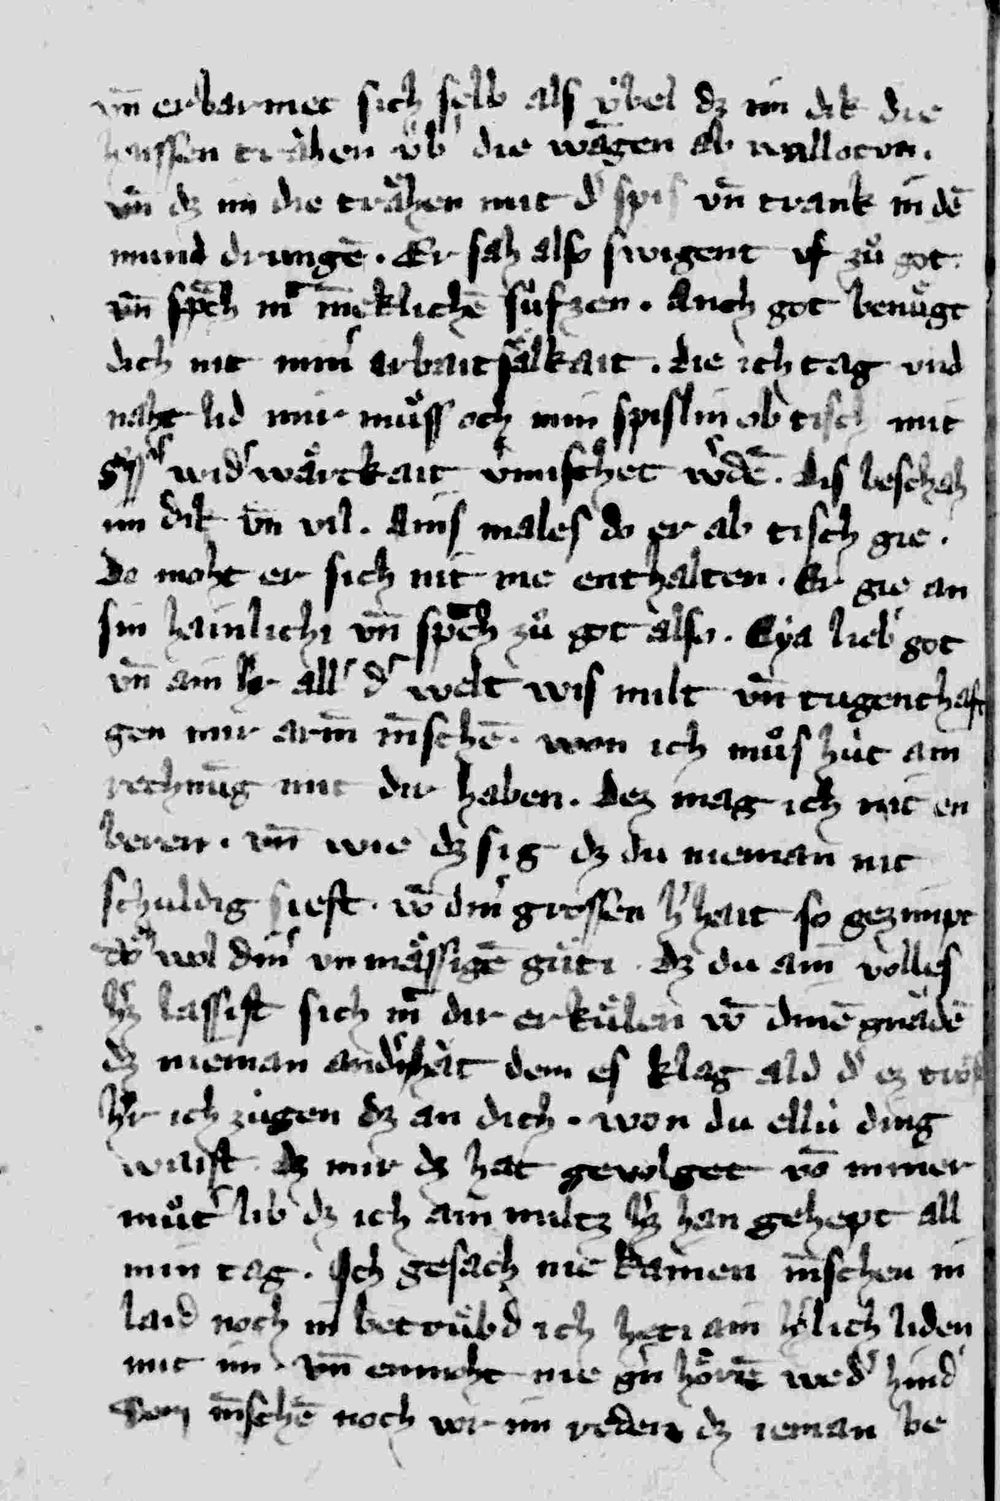 vn̄ erbarmet sich selb als v́bel dz im dik die
haissen trähen v́b' die wāgen ab wallotvn.
vn̄ dz im die trähen mit d' spis vn̄ trank in dē
mund drungē. Er sah also swigent vf zů got
vn̄ sp̄ch mīt īneklichē súfzen. Auch got benůgt
dich nit min' arbaitsälkait. die ich tag vnd
naht lid mir můss och min spislin ob tisch mit
widʼwärtkait v'mischet w'dē. dis beschah
im dik vn̄ vil. Ains males do er ab tisch gie.
Do moht er sich nit me enthalten. Er gie an
sin hainlichi vn̄ sp̄ch zů got also. Eya lieb' got
vn̄ ain h'r all' d' welt wis milt vn̄ tugenthaft
gen mir arm̄ m̄schē. won ich můs hút ain
rechnūg mit dir haben. dez mag ich nit en
beren. vn̄ wie dz sig dz du nieman nit
schuldig siest. vō din' grossen h'hait so gezimpt
wol din' vnmässigē gůti. dz du ain volles
h'z lassist sich mīt dir erkůlen vō dinē gnädē
dz nieman and's hàt dem es klag ald d' ez trö
h'r ich zúgen dz an dich. won du ellú ding
waist dz mir dz hat gevolget vō miner
můt' lib dz ich ain miltz h'z han gehept all
min tag. Ich gesach nie kainen m̄schen in
laid noch in betrůbd ich heti ain h'zlich liden
mit im. vn̄ enmoht nie g'n hörē wed' hind'
dem m̄schē noch vor im reden dz ieman be